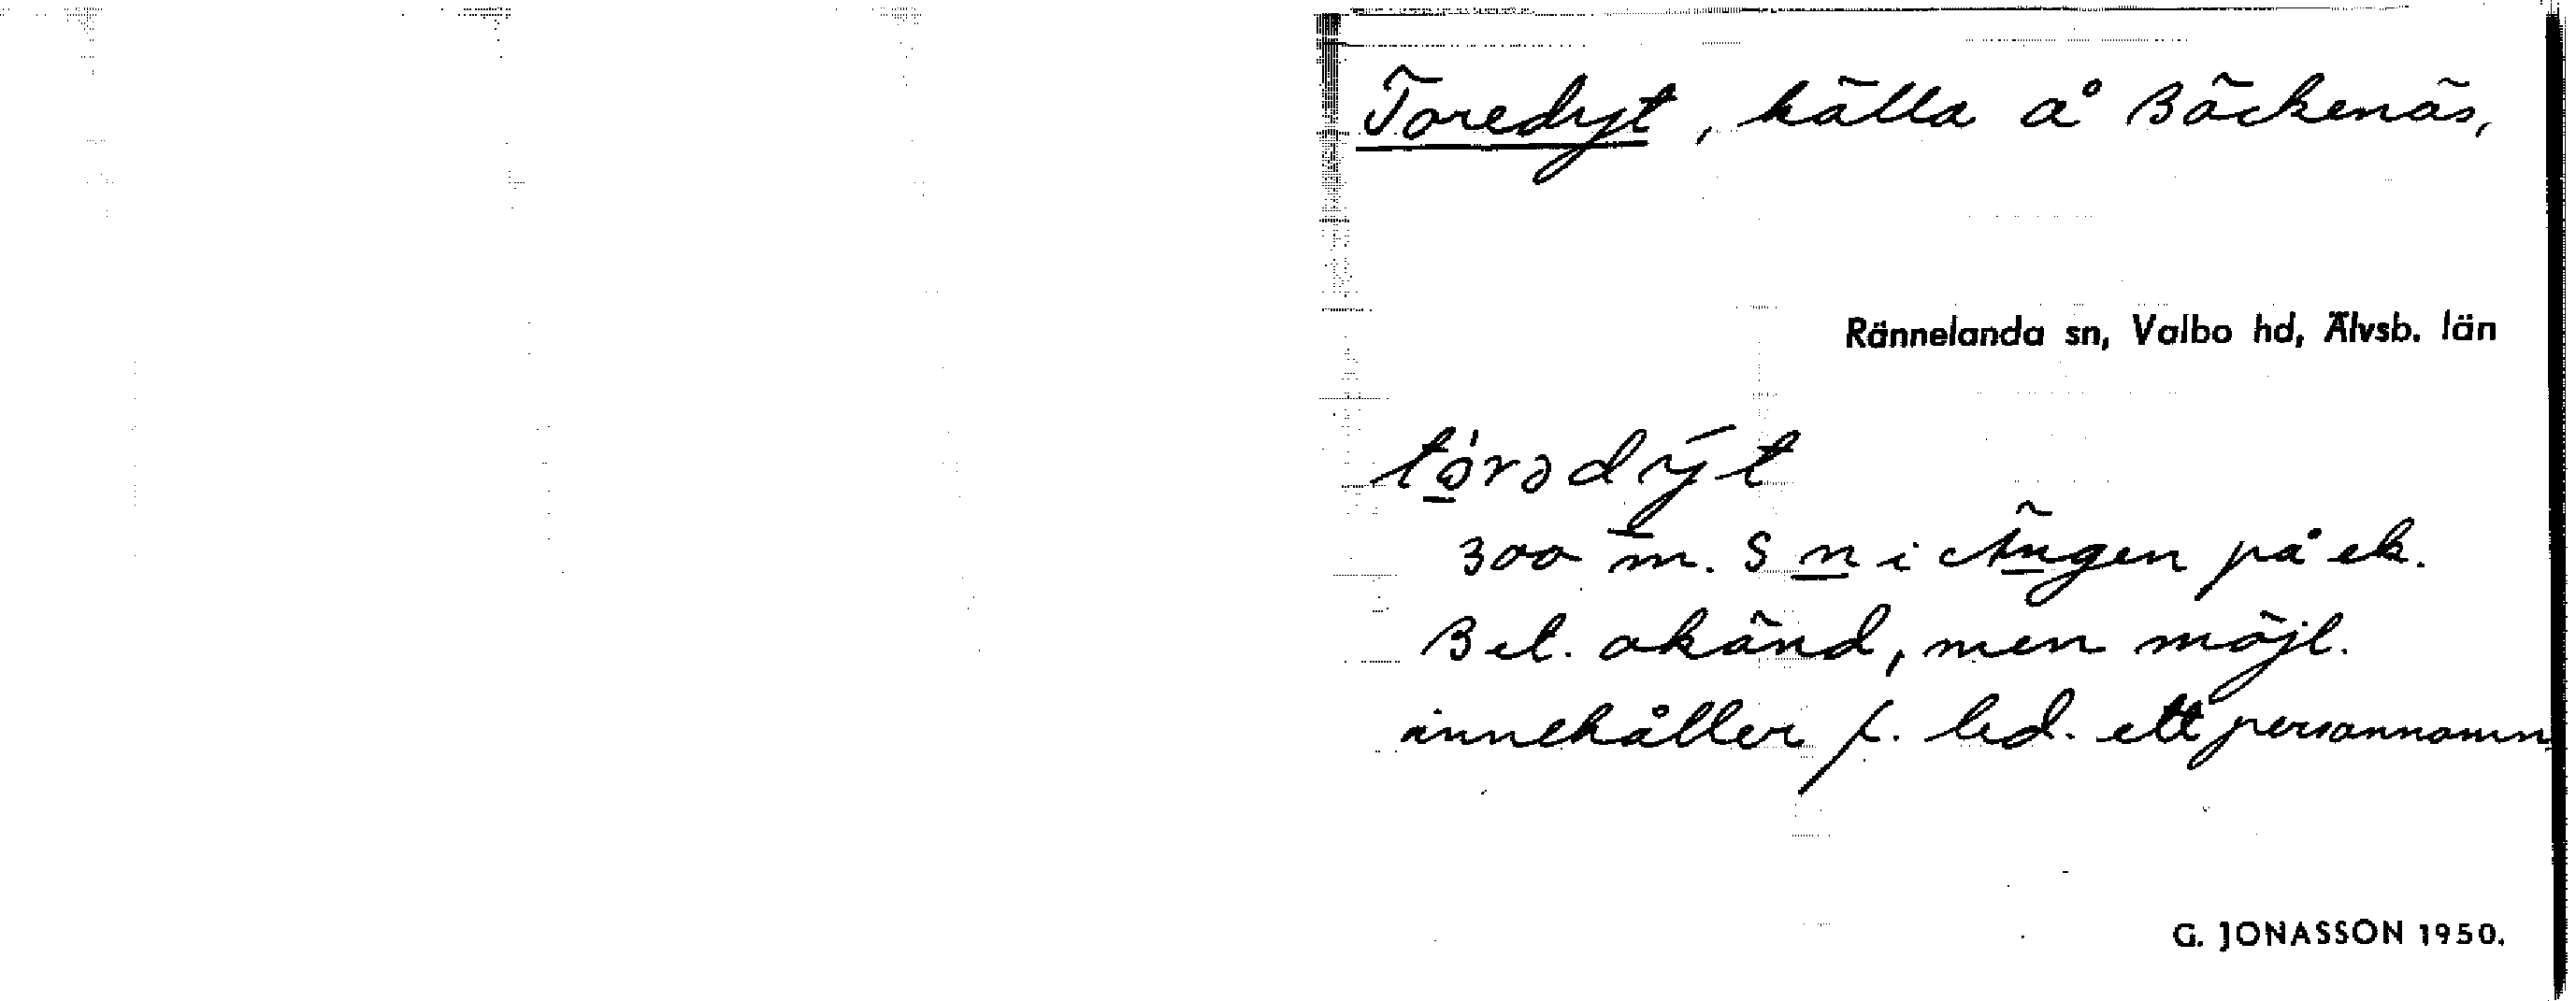 Toredyt, källa å Bäckenäs,
Rännelanda sn, Valbo hd, Älvsb. län
tórədȳt
300 m. S n i Ängen på ek.
Bet. okänd, men möjl.
innehåller f. led. ett personnamn
G. JONASSON 1950.